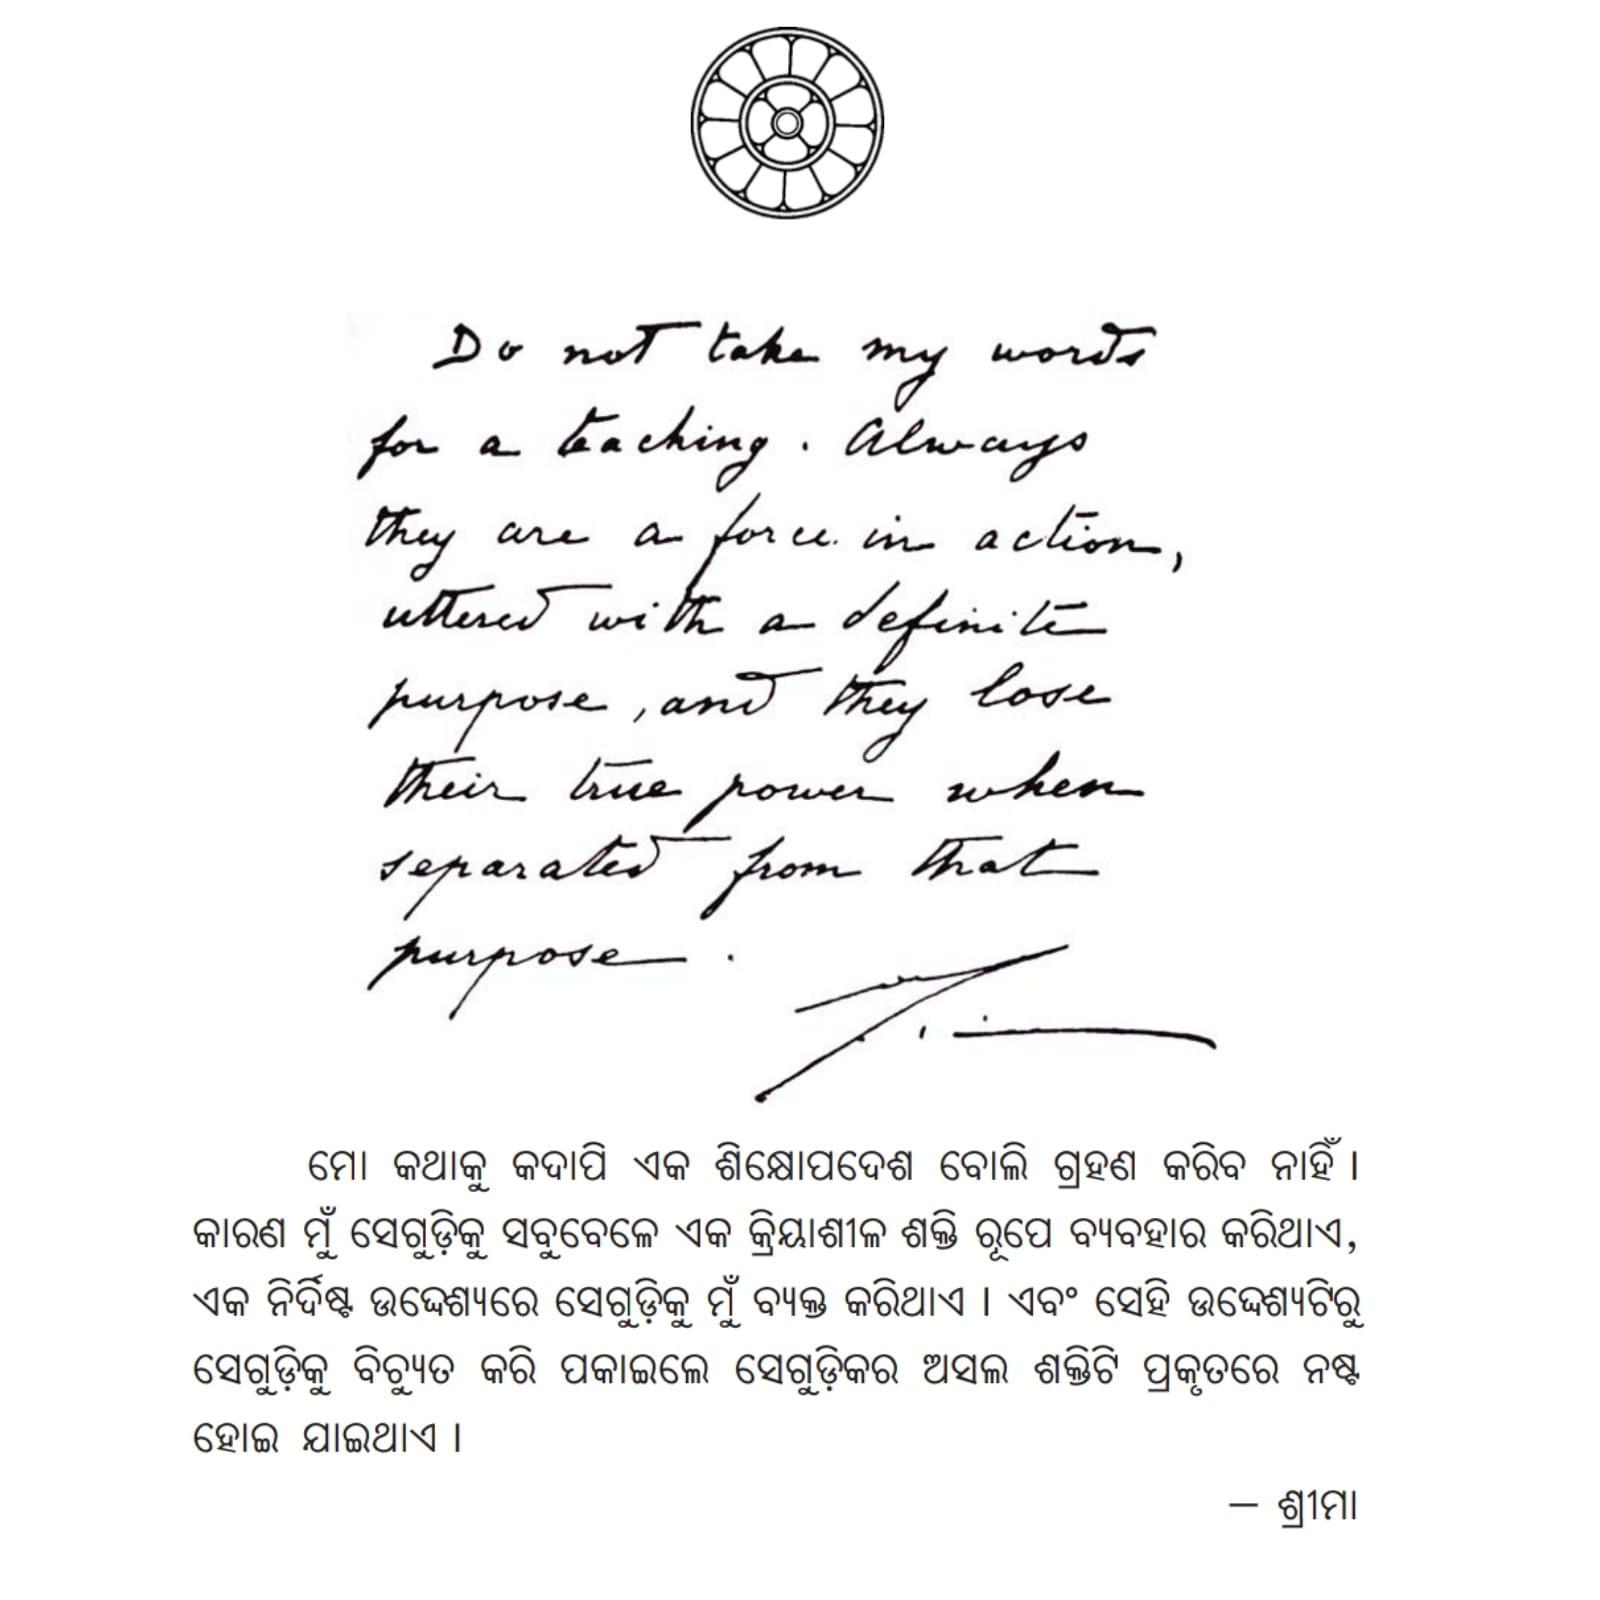 Do not take my words
for a teaching. Always
they are a force in action,
uttered with a definite
purpose, and they lose
their true power when
separated from that
purpose.
ମୋ କଥାକୁ କଦାପି ଏକ ଶିକ୍ଷୋପଦେଶ ବୋଲି ଗ୍ରହଣ କରିବ ନାହିଁ ।
କାରଣ ମୁଁ ସେଗୁଡ଼ିକୁ ସବୁବେଳେ ଏକ କ୍ରିୟାଶୀଳ ଶକ୍ତି ରୂପେ ବ୍ୟବହାର କରିଥାଏ,
ଏକ ନିର୍ଦିଷ୍ଟ ଉଦ୍ଦେଶ୍ୟରେ ସେଗୁଡ଼ିକୁ ମୁଁ ବ୍ୟକ୍ତ କରିଥାଏ । ଏବଂ ସେହି ଉଦ୍ଦେଶ୍ୟଟିରୁ
ସେଗୁଡ଼ିକୁ ବିଚ୍ୟୁତ କରି ପକାଇଲେ ସେଗୁଡ଼ିକର ଅସଲ ଶକ୍ତିଟି ପ୍ରକୃତରେ ନଷ୍ଟ
ହୋଇ ଯାଇଥାଏ ।
– ଶ୍ରୀମା